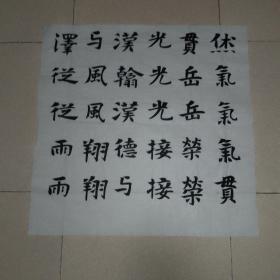 烋氣氣氣貫
貫岳岳榮榮
光光光接接
漢翰漢德与
与風風翔翔
澤從從雨雨